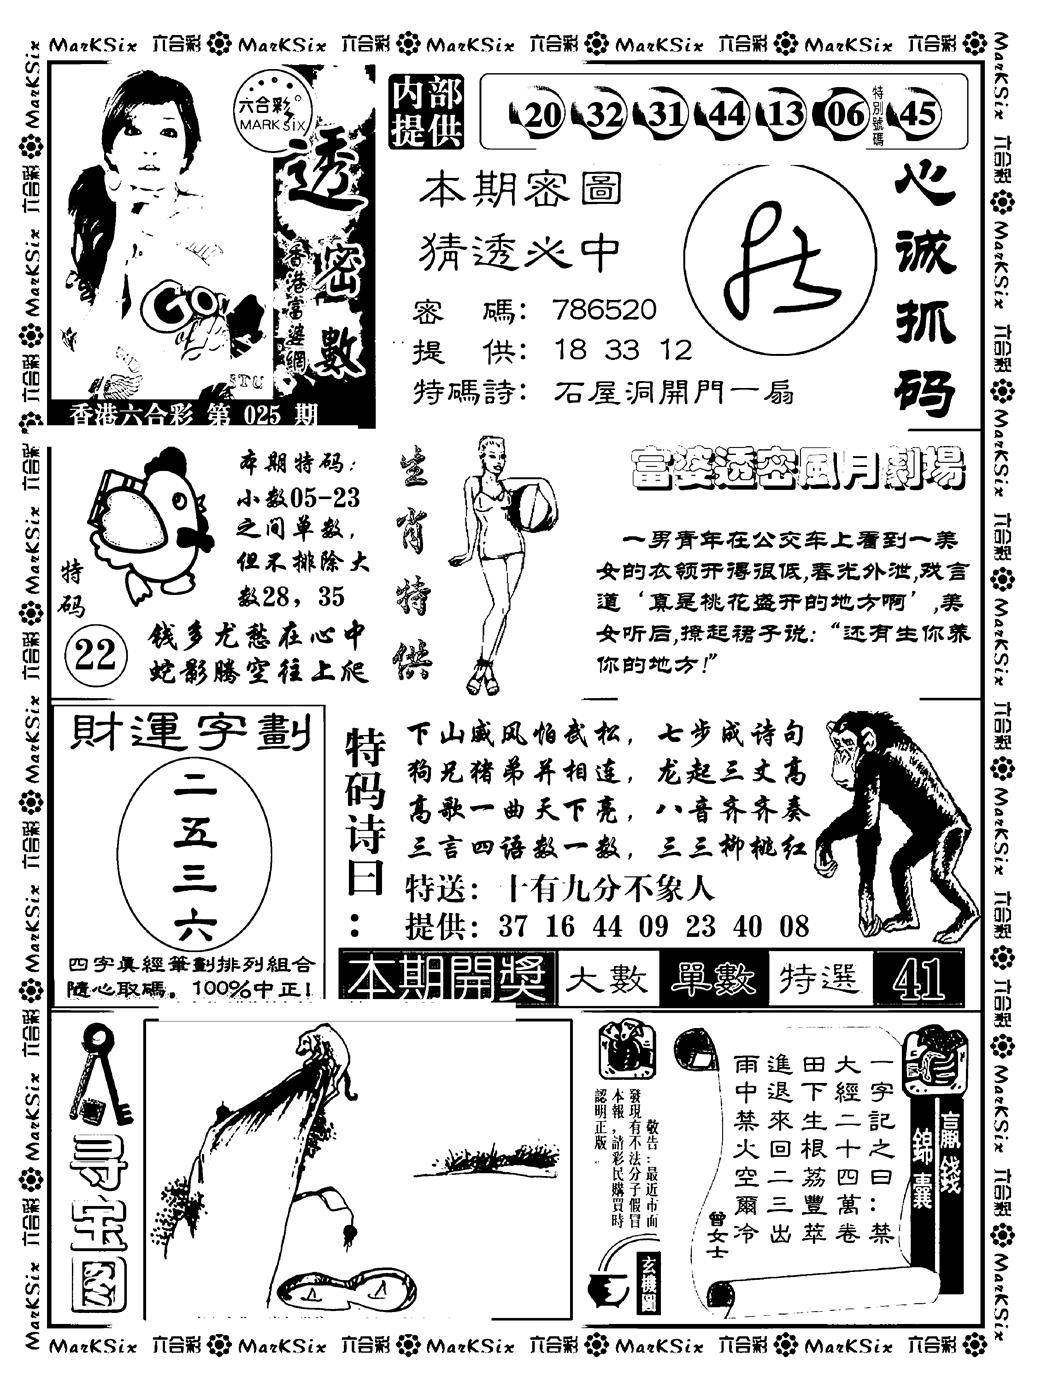 MarKSix 六合彩 MarKSix 六合彩 MarKSix 六合彩 MarKSix 六合彩 MarKSix 六合彩
六合彩
MARK SIX
透密數
香港富婆網
香港六合彩 第 025 期
内部
提供
20 32 31 44 13 06
特別號碼
45
本期密圖
猜透必中
密 碼：786520
提 供：18 33 12
特碼詩：石屋洞開門一扇
心诚抓码
特码
22
本期特码：
小数05-23
之间单数，
但不排除大
数28，35
钱多尤愁在心中
蛇影腾空往上爬
生肖特供
富婆透密風月劇場
一男青年在公交车上看到一美
女的衣领开得很低,春光外泄,戏言
道‘真是桃花盛开的地方啊’,美
女听后,撩起裙子说:“还有生你养
你的地方!”
財運字劃
二
五
三
六
四字真經筆劃排列組合
隨心取碼，100%中正!
特码诗曰：
下山威风怕武松，七步成诗句
狗兄猪弟并相连，龙起三丈高
高歌一曲天下亮，八音齐齐奏
三言四语数一数，三三柳桃红
特送：十有九分不象人
提供：37 16 44 09 23 40 08
本期開獎 大數 單數 特選 41
寻宝图
敬告：最近市面
發現有不法分子假冒
本報，請彩民購買時
認明正版．
玄機圖
贏錢
錦囊
一字記之曰：禁
大經二十四萬卷
田下生根荔豐萃
進退來回二三出
雨中禁火空爾冷
曾女士
MarKSix 六合彩 MarKSix 六合彩 MarKSix 六合彩 MarKSix 六合彩 MarKSix 六合彩